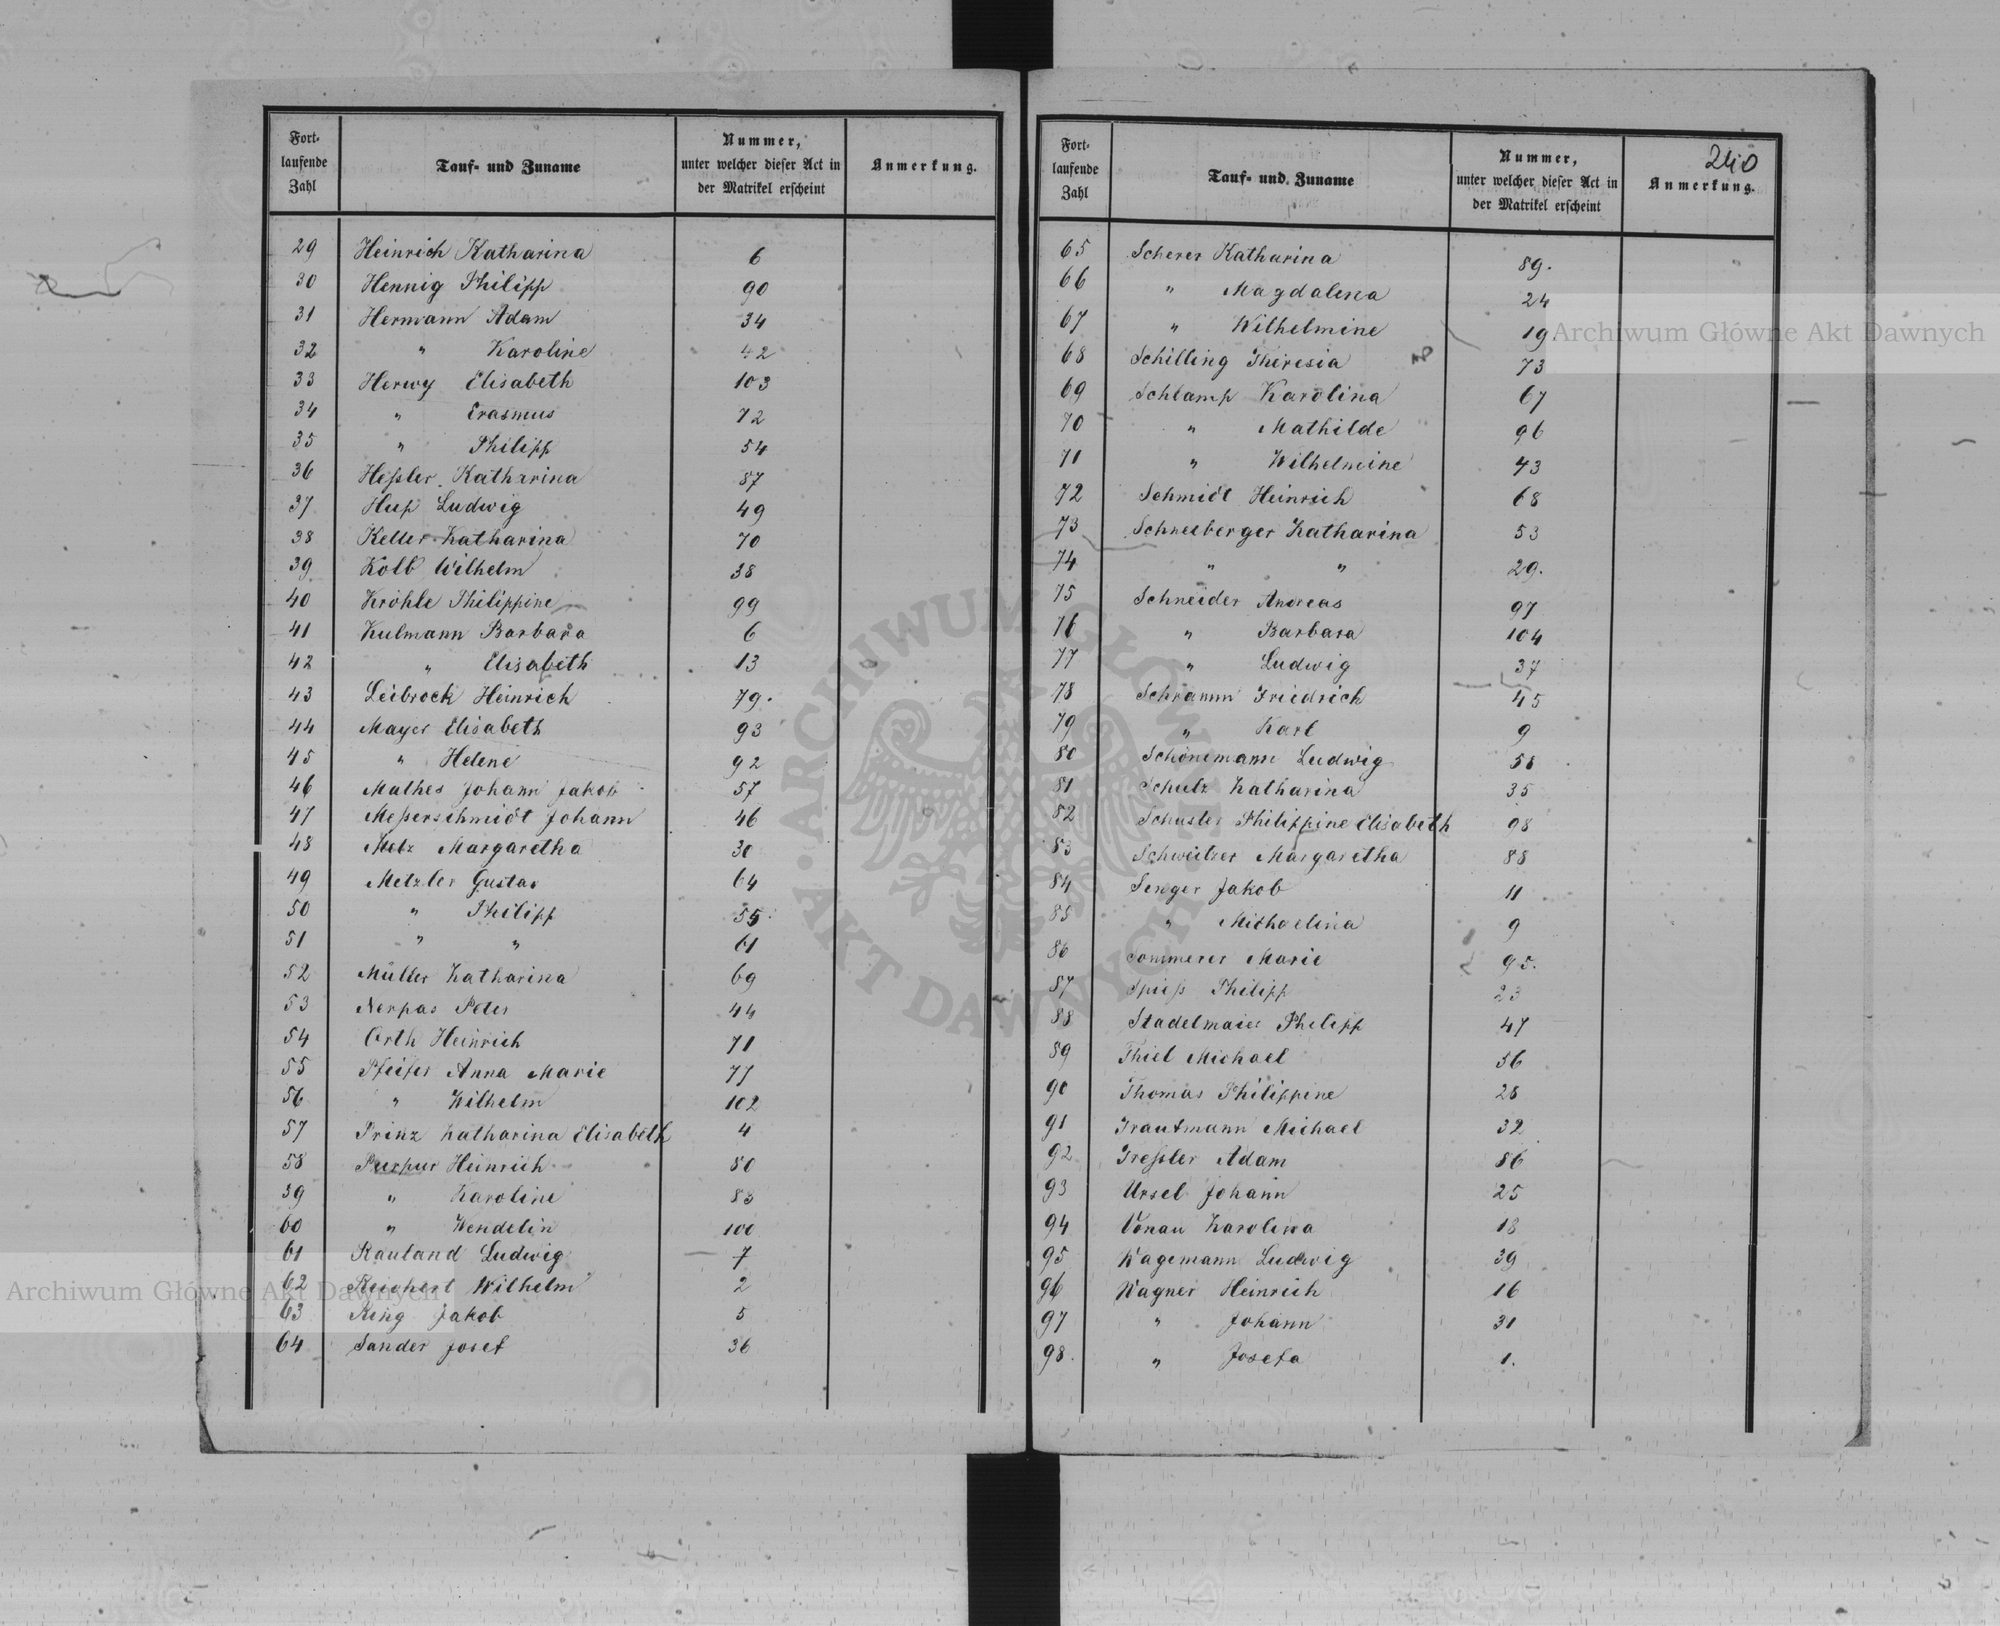 Fort-
laufende
Zahl
Tauf- und Zuname
Nummer,
unter welcher dieser Act in
der Matrikel erscheint
Anmerkung.
29 Heinrich Katharina 6
30 Hennig Philipp 90
31 Hermann Adam 34
32 " Karoline 42
33 Herwy Elisabeth 103
34 " Erasmus 72
35 " Philipp 54
36 Heßler Katharina 87
37 Hup Ludwig 49
38 Keller Katharina 70
39 Kolb Wilhelm 38
40 Kröhle Philippine 99
41 Kulmann Barbara 6
42 " Elisabeth 13
43 Leibrock Heinrich 79.
44 Mayer Elisabeth 93
45 " Helene 92
46 Mathes Johann Jakob 57
47 Meßerschmidt Johann 46
48 Metz Margaretha 30
49 Metzler Gustav 64
50 " Philipp 55
51 " " 61
52 Müller Katharina 69
53 Nerpas Peter 44
54 Orth Heinrich 71
55 Pfeifer Anna Marie 77
56 " Wilhelm 102
57 Prinz Katharina Elisabeth 4
58 Purpur Heinrich 80
59 " Karoline 83
60 " Wendelin 100
61 Rauland Ludwig 7
62 Reichert Wilhelm 2
63 Ring Jakob 5
64 Sander Josef 36
Fort-
laufende
Zahl
Tauf- und Zuname
Nummer,
unter welcher dieser Act in
der Matrikel erscheint
240
Anmerkung.
65 Scherer Katharina 89.
66 " Magdalena 24
67 " Wilhelmine 19
68 Schilling Theresia 73
69 Schlamp Karolina 67
70 " Mathilde 96
71 " Wilhelmine 43
72 Schmidt Heinrich 68
73 Schneeberger Katharina 53
74 " " 29.
75 Schneider Andreas 97
76 " Barbara 104
77 " Ludwig 37
78 Schramm Friedrich 45
79 " Karl 9
80 Schönemann Ludwig
81 Schulz Katharina 35
82 Schuster Philippine Elisabeth 98
83 Schweitzer Margaretha 88
84 Senger Jakob 11
85 " Michaelina 9
86 Sommerer Marie 95.
87 Spieß Philipp 23
88 Stadelmaier Philipp 47
89 Thiel Michael 56
90 Thomas Philippine 28
91 Trautmann Michael 32
92 Treßler Adam 86
93 Ursel Johann 25
94 Vonau Karolina 18
95 Wagemann Ludwig 39
96 Wagner Heinrich 16
97 " Johann 31
98. " Josefa 1.
Archiwum Główne Akt Dawnych
Archiwum Główne Akt Dawnych
ARCHIWUM GŁÓWNE AKT DAWNYCH